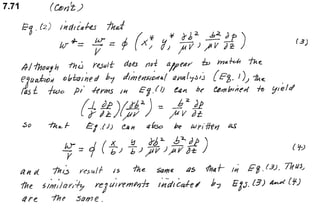 7.71 (con't)
Eq. (2) indicates that
w* = w/V = φ (x*, y*, γb²/μV, b²/μV ∂p/∂z) (3)
Although this result does not appear to match the
equation obtained by dimensional analysis (Eq. 1), the
last two pi terms in Eq. (1) can be combined to yield
(1/γ ∂p/∂z)(γb²/μV) = b²/μV ∂p/∂z
so that Eq. (1) can also be written as
w/V = φ (x/b, y/b, γb²/μV, b²/μV ∂p/∂z) (4)
and this result is the same as that in Eq. (3). Thus,
the similarity requirements indicated by Eqs. (3) and (4)
are the same.